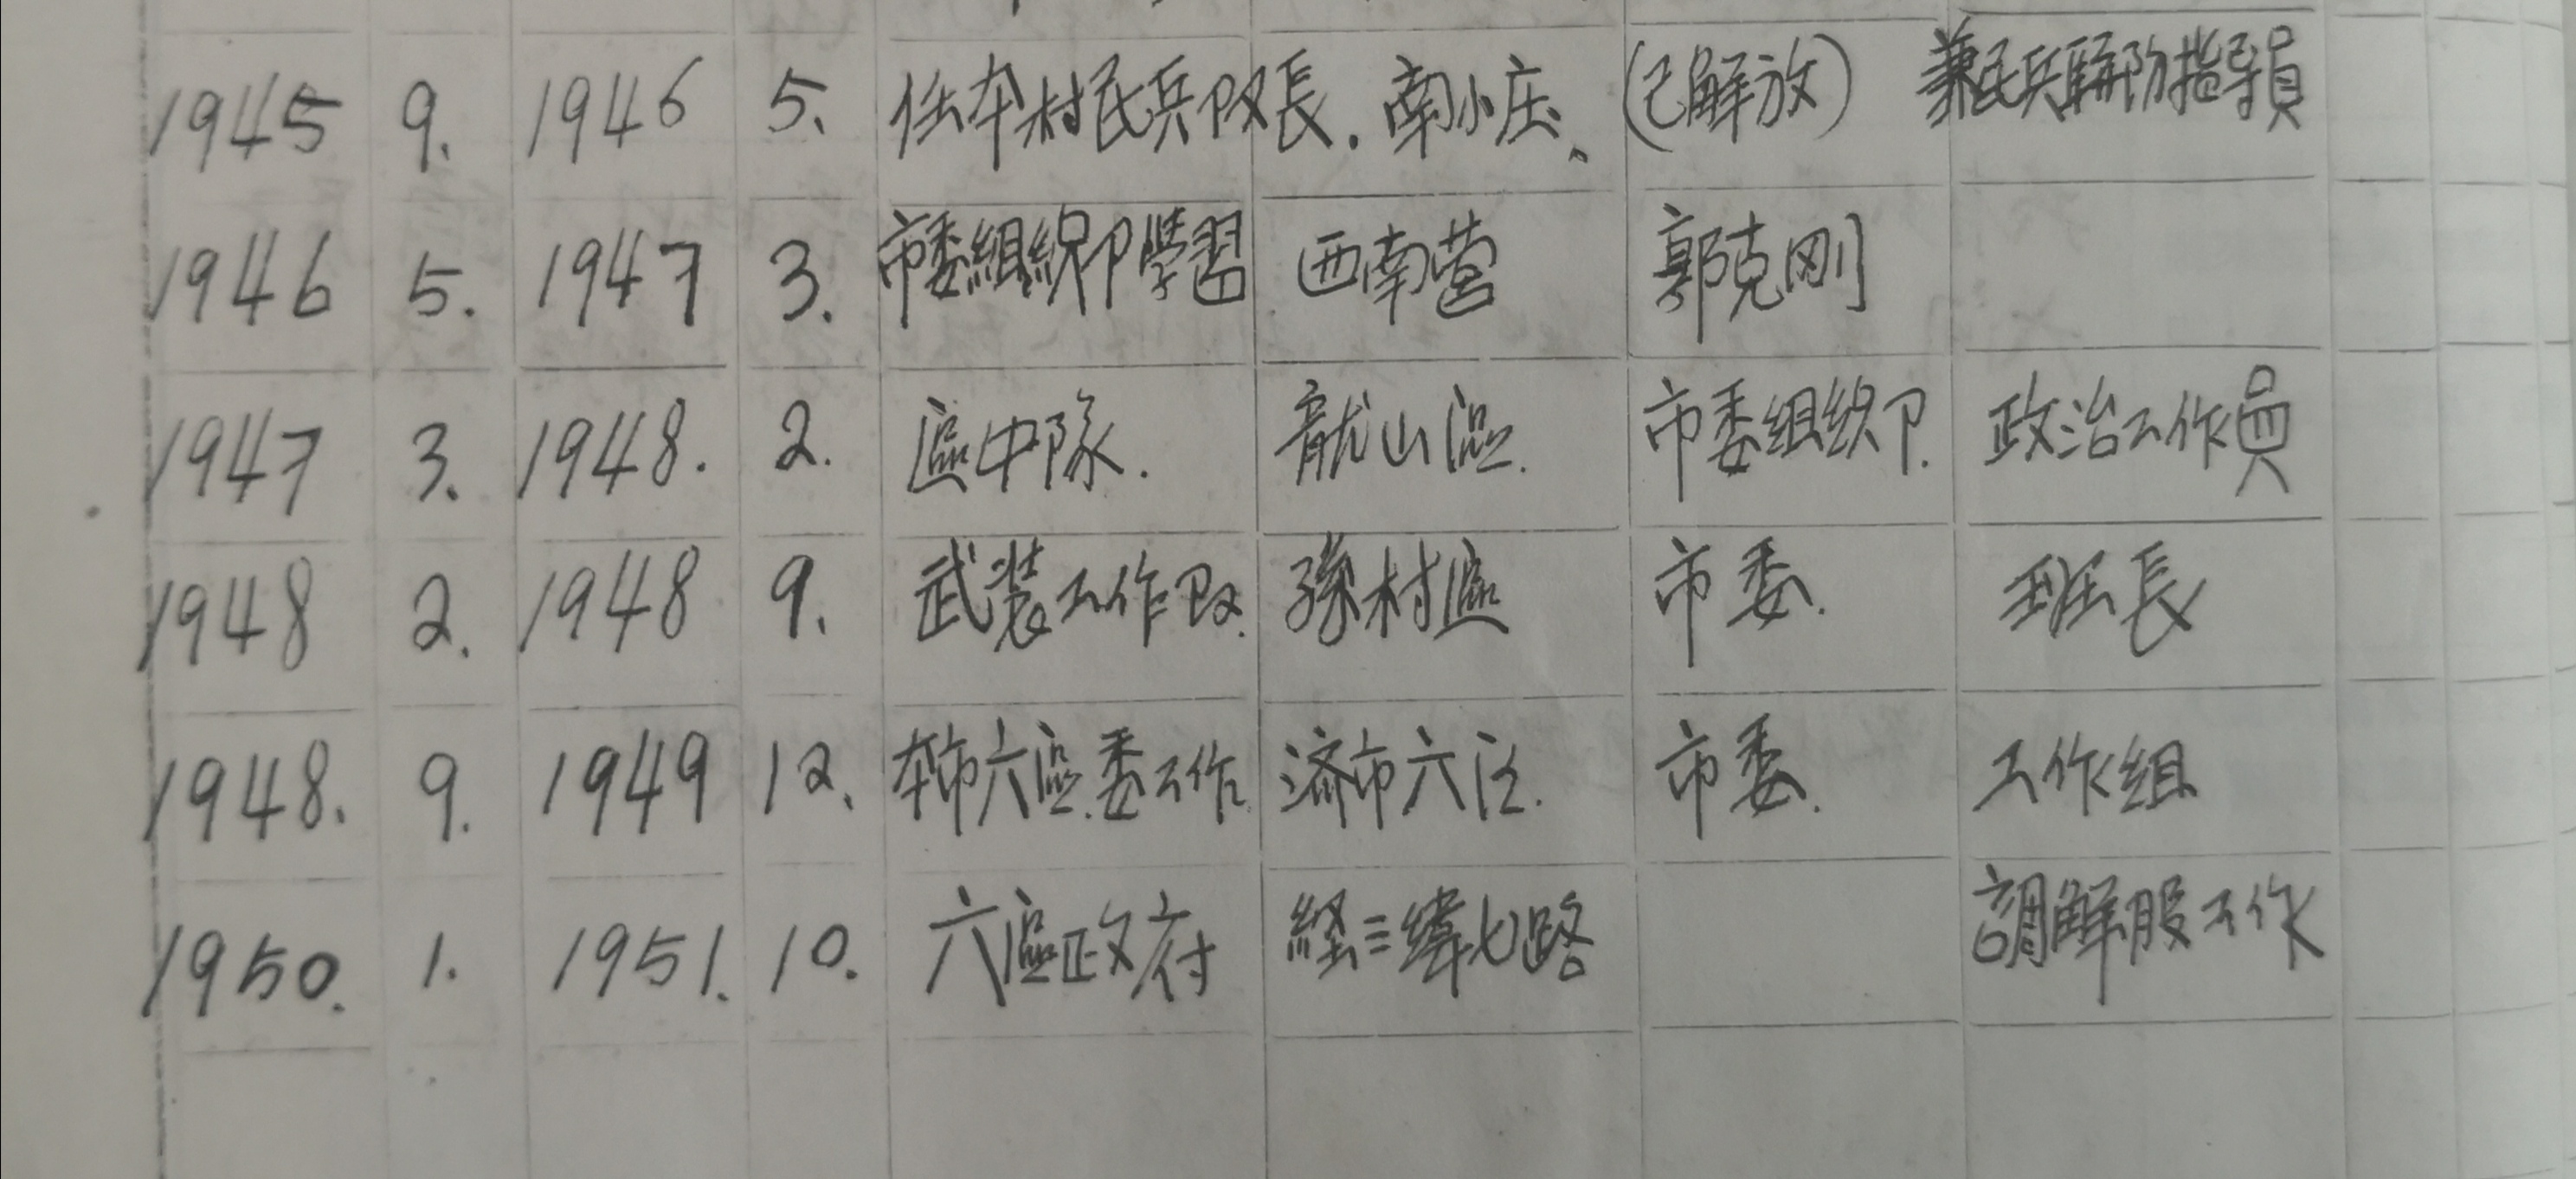 1945 9. 1946 5. 任本村民兵队長. 南小庄、 (已解放) 兼民兵联防指导員
1946 5. 1947 3. 市委組織卩學習 西南营 郭克刚
1947 3. 1948. 2. 區中隊. 龍山區. 市委组织卩. 政治工作員
1948 2. 1948 9. 武装工作队. 孫村區 市委. 班長
1948. 9. 1949 12. 本市六區委工作 济市六区. 市委. 工作組
1950. 1. 1951. 10. 六區政府 經三緯七路 調解股工作